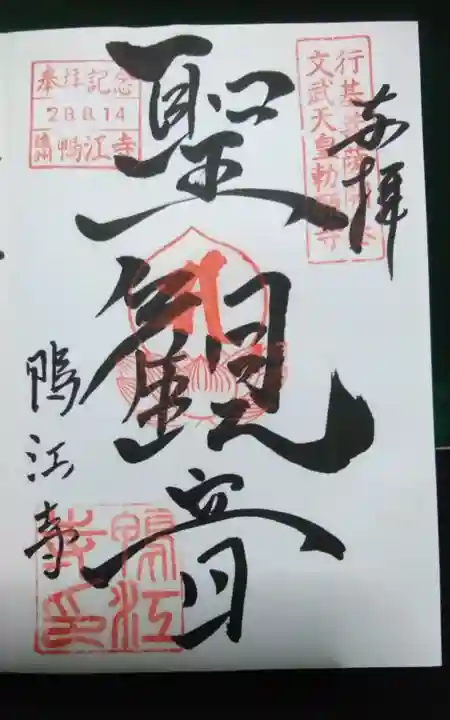 行基菩薩開基
文武天皇勅願寺
奉拝
聖観音
奉拝記念
28.8.14
遠州 鴨江寺
鴨江寺
鴨江寺印